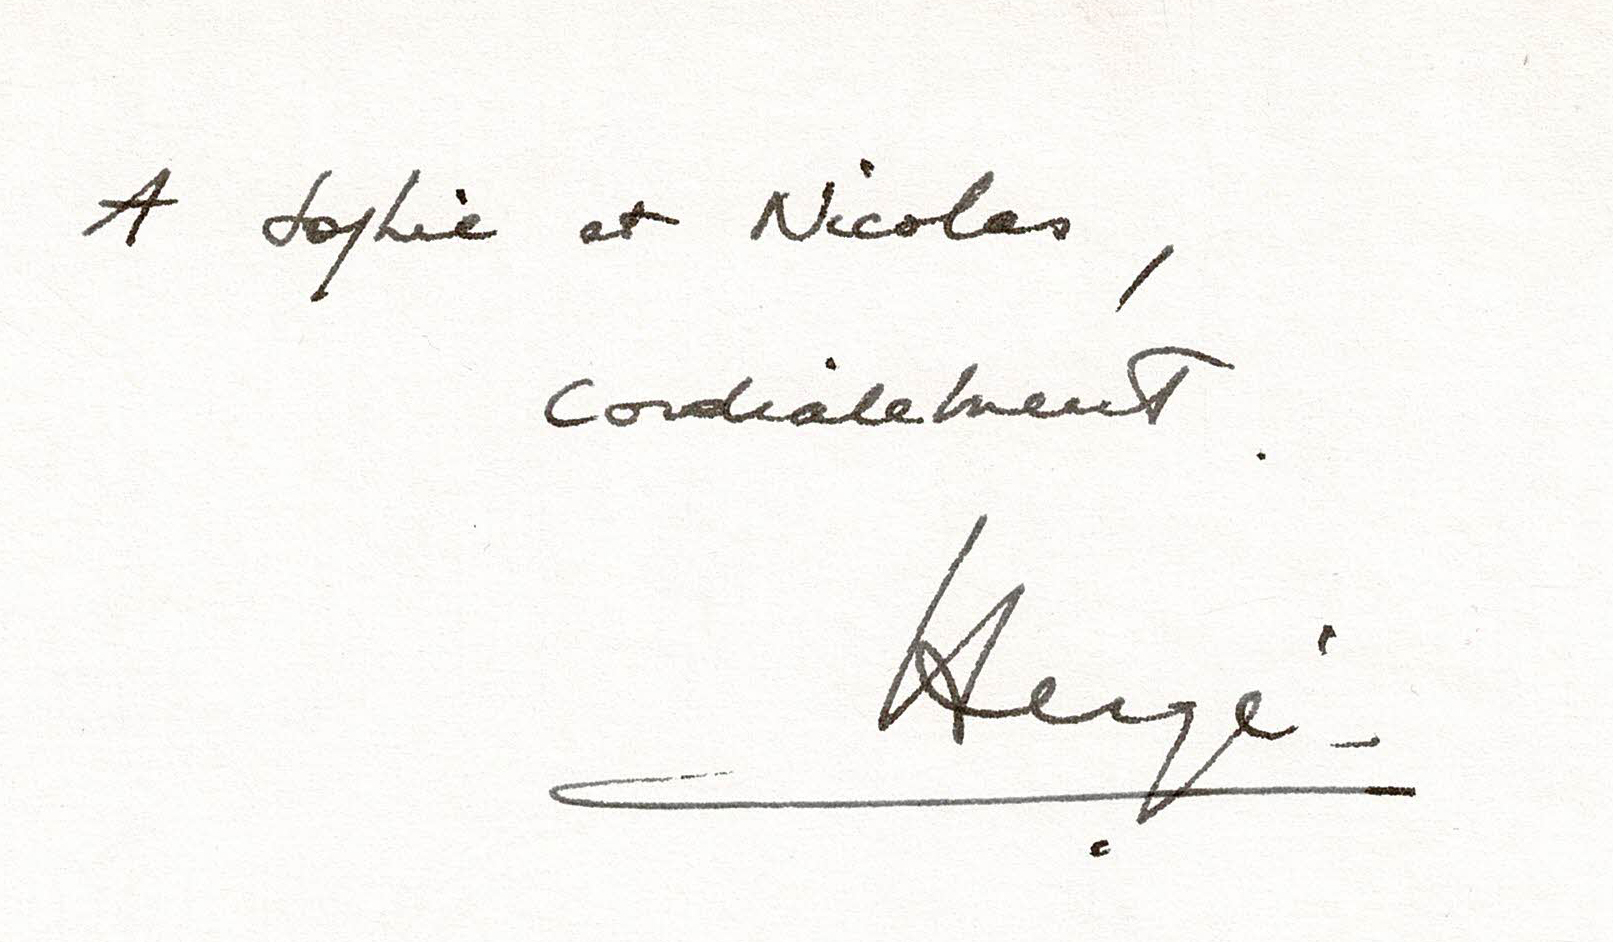 A Sophie et Nicolas,
cordialement.
Hergé -